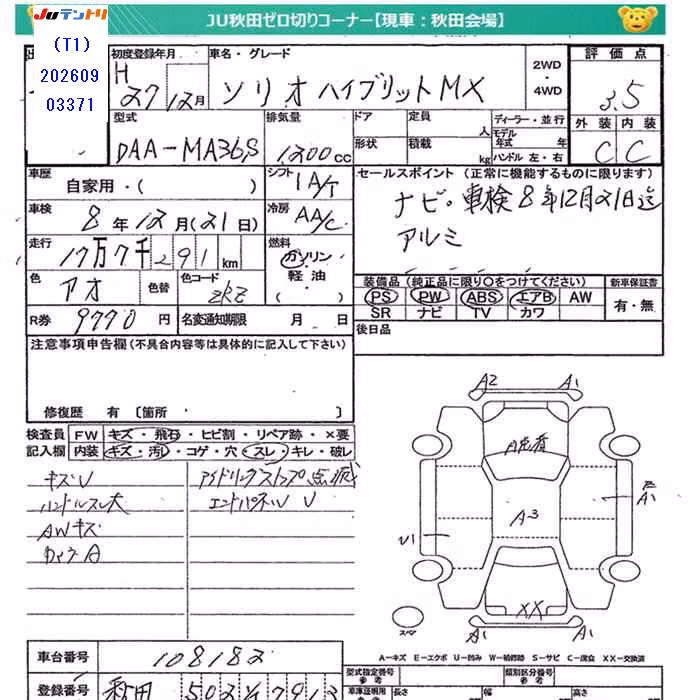 Juテントリ
JU秋田ゼロ切りコーナー【現車：秋田会場】
(T1)
202609
03371
初度登録年月
H 27 12月
車名・グレード
ソリオハイブリットMX
2WD
・
4WD
評価点
3.5
外装 内装
C C
型式
DAA-MA36S
排気量
1200cc
ドア
形状
定員 人
積載 kg
ディーラー・並行
モデル年式 年
ハンドル 左・右
車歴
自家用・(
シフト
1A/T
セールスポイント（正常に機能するものに限ります）
ナビ・車検8年12月21日迄
アルミ
車検
8年12月(21日)
冷房
AA/C
走行
17万7千291km
燃料
ガソリン
軽油
( )
色
アオ
色替
色コード
ZKZ
装備品（純正品に限り○をつけてください）
新車保証書
PS PW ABS エアB AW
SR ナビ TV カワ
有・無
R券
9770円
名変通知期限 月 日
後日品
注意事項申告欄(不具合内容等は具体的に記入して下さい)
修復歴 有 〔箇所 〕
検査員
記入欄
FW キズ・飛石・ヒビ割・リペア跡・×要
内装 キズ・汚レ・コゲ・穴・スレ・キレ・破レ
キズU
ハンドルスレ大
AWキズ
アイドリングストップ点滅
エンドパネルU
A2 A1
A3
A1
U1
XX
A1 A1
スペア
A－キズ E－エクボ U－凹み W－補修跡 S－サビ C－腐食 XX－交換済
車台番号
108182
登録番号
秋田 502
型式指定番号
参考
類別区分番号
参考
車庫証明用
長さ 幅 高さ